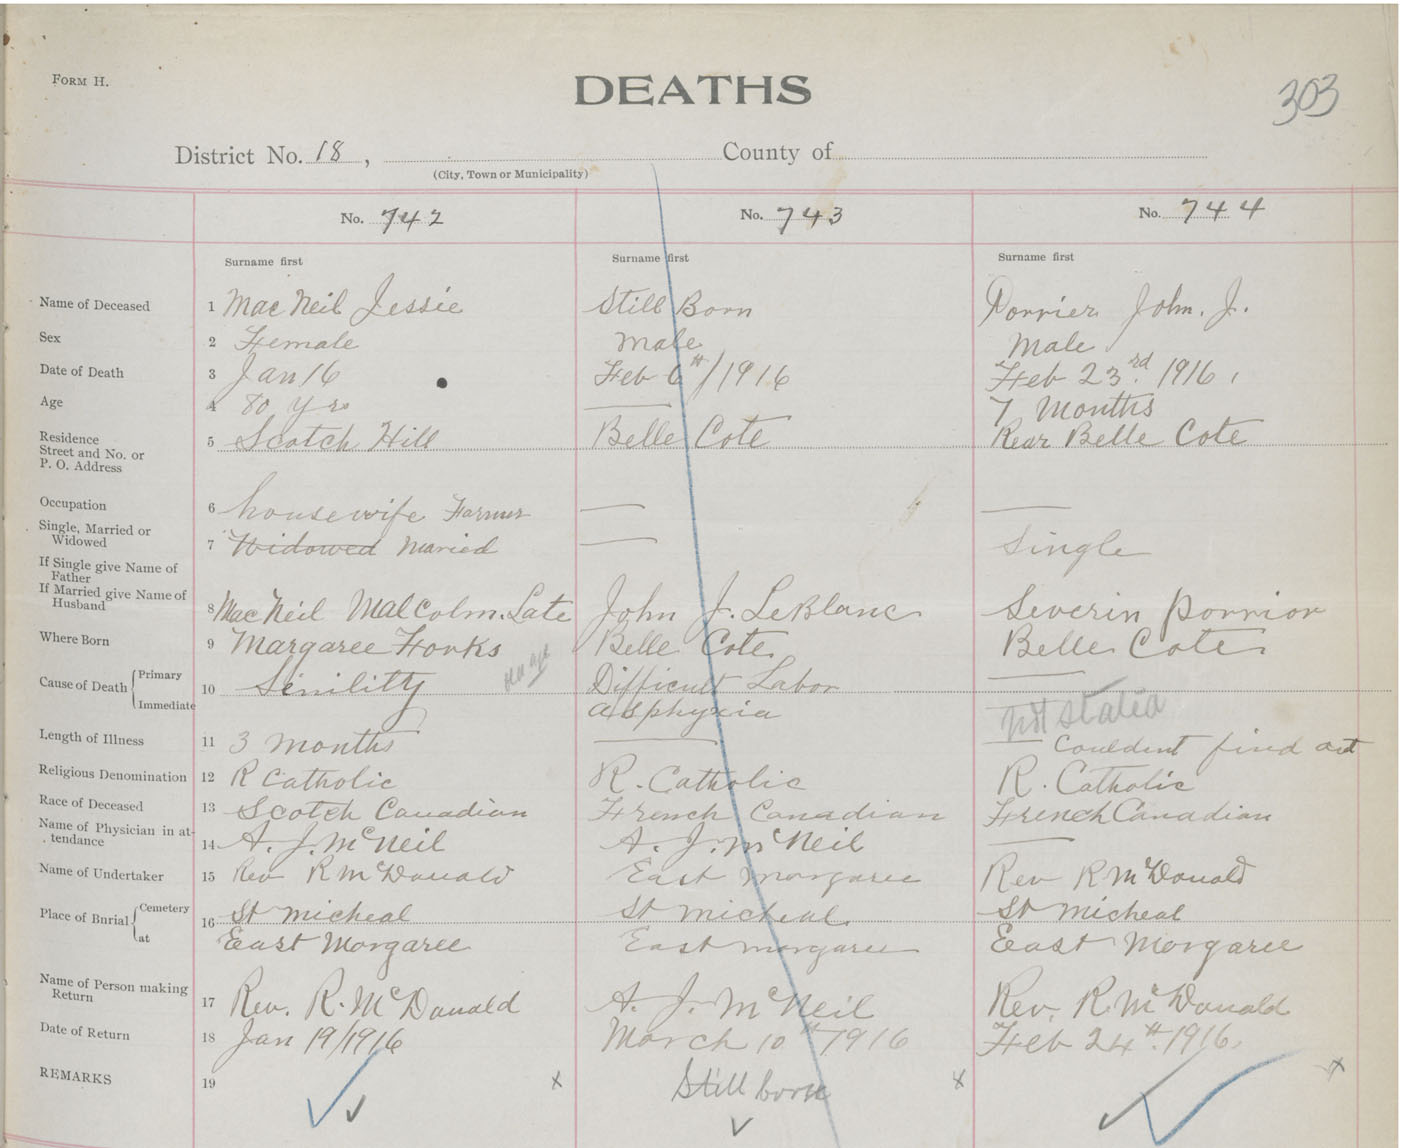 FORM H.
DEATHS
303
District No. 18, County of
(City, Town or Municipality)
No. 742 No. 743 No. 744
Surname first Surname first Surname first
Name of Deceased 1 Mac Neil Jessie Still Born Porrier John. J.
Sex 2 Female Male Male
Date of Death 3 Jan 16 Feb 6th/1916 Feb 23rd. 1916,
Age 4 80 yrs — 7 Months
Residence 5 Scotch Hill Belle Cote Rear Belle Cote
Street and No. or
P. O. Address
Occupation 6 housewife Farmer — —
Single, Married or
Widowed 7 Widowed Maried — Single
If Single give Name of
Father
If Married give Name of
Husband 8 Mac Neil Malcolm. Late John J. LeBlanc Severin Porrior
Where Born 9 Margaree Forks Belle Cote Belle Cote
Cause of Death Primary —
10 Sinility old age Difficult Labor
Immediate asphyxia — not stated
Length of Illness 11 3 months — — Couldent find out
Religious Denomination 12 R Catholic R. Catholic R. Catholic
Race of Deceased 13 Scotch Canadian French Canadian French Canadian
Name of Physician in at-
tendance 14 A. J. McNeil A. J. McNeil —
Name of Undertaker 15 Rev R McDonald East Morgaree Rev R McDonald
Place of Burial Cemetery 16 St Micheal St Micheal St Micheal
at East Morgaree East Morgaree East Morgaree
Name of Person making
Return 17 Rev. R. McDonald A. J. McNeil Rev. R. McDonald
Date of Return 18 Jan 19/1916 March 10th 1916 Feb 24th. 1916.
REMARKS 19 x Still born x x